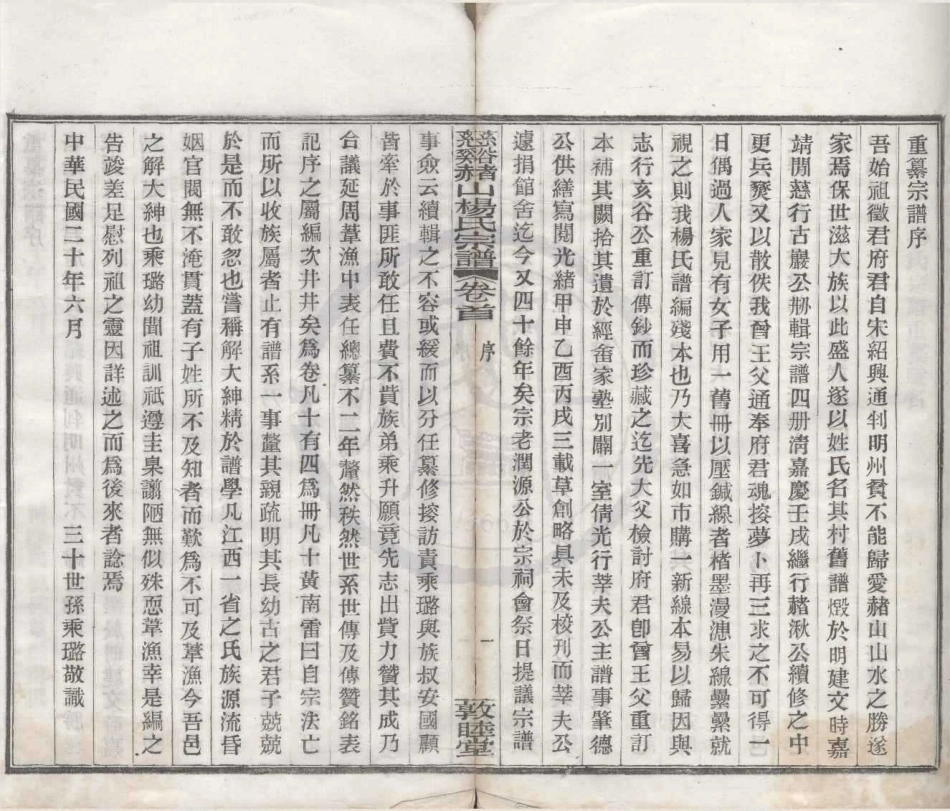 重纂宗譜序
吾始祖徵君府君自宋紹興通判明州貧不能歸愛赭山山水之勝遂
家焉保世滋大族以此盛人遂以姓氏名其村舊譜燬於明建文時嘉
靖閒慈行古巖公刱輯宗譜四册清嘉慶壬戌繼行赭湫公續修之中
更兵燹又以散佚我曾王父通奉府君魂接夢卜再三求之不可得一
日偶過人家見有女子用一舊冊以壓鍼線者楮墨漫漶朱線纍纍就
視之則我楊氏譜編殘本也乃大喜急如市購一新線本易以歸因與
志行亥谷公重訂傳鈔而珍藏之迄先大父檢討府君卽曾王父重訂
本補其闕拾其遺於經畬家塾別闢一室倩光行莘夫公主譜事肇德
公供繕寫閱光緒甲申乙酉丙戌三載草創略具未及校刊而莘夫公
遽捐館舍迄今又四十餘年矣宗老潤源公於宗祠會祭日提議宗譜
慈谿赭山楊氏宗譜 卷首 序 一 敦睦堂
事僉云續輯之不容或緩而以分任纂修採訪責乘璐與族叔安國顧
皆牽於事匪所敢任且費不貲族弟乘升願竟先志出貲力贊其成乃
合議延周葦漁中表任總纂不二年釐然秩然世系世傳及傳贊銘表
記序之屬編次井井矣爲卷凡十有四爲冊凡十黃南雷曰自宗法亡
而所以收族屬者止有譜系一事釐其親疏明其長幼古之君子兢兢
於是而不敢忽也嘗稱解大紳精於譜學凡江西一省之氏族源流昏
姻官閥無不淹貫蓋有子姓所不及知者而歎爲不可及葦漁今吾邑
之解大紳也乘璐幼聞祖訓祇遵圭臬謭陋無似殊恧葦漁幸是編之
告竣差足慰列祖之靈因詳述之而爲後來者諗焉
中華民國二十年六月 三十世孫乘璐敬識